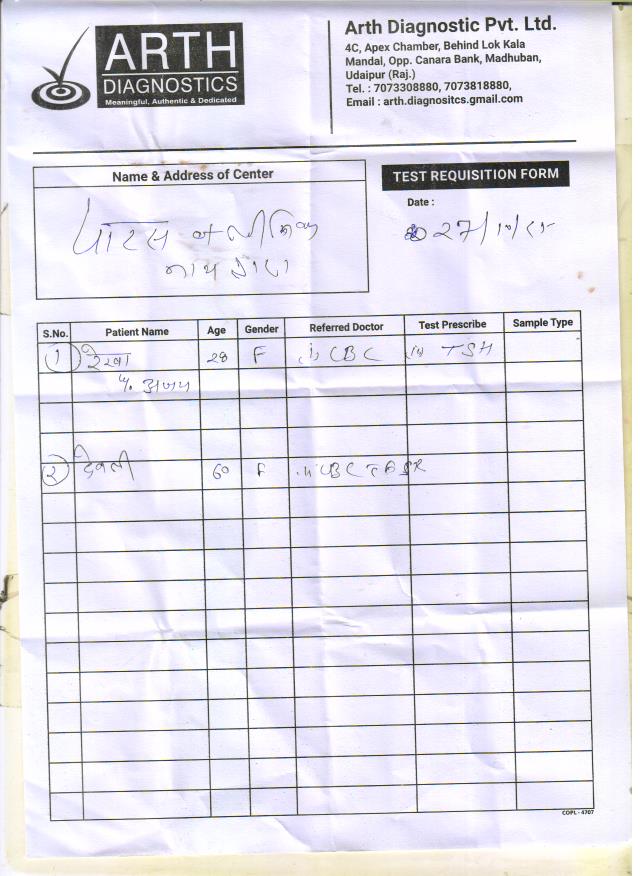 ARTH
DIAGNOSTICS
Meaningful, Authentic & Dedicated
Arth Diagnostic Pvt. Ltd.
4C, Apex Chamber, Behind Lok Kala
Mandal, Opp. Canara Bank, Madhuban,
Udaipur (Raj.)
Tel. : 7073308880, 7073818880,
Email : arth.diagnositcs.gmail.com
Name & Address of Center
पारस क्लीनिक
नाथद्वारा
TEST REQUISITION FORM
Date :
27/10/25
S.No. Patient Name Age Gender Referred Doctor Test Prescribe Sample Type
1 रेखा 28 F (i) CBC (ii) TSH
W/o
२ देवली 60 F (i) CBC ESR
COPL - 4707